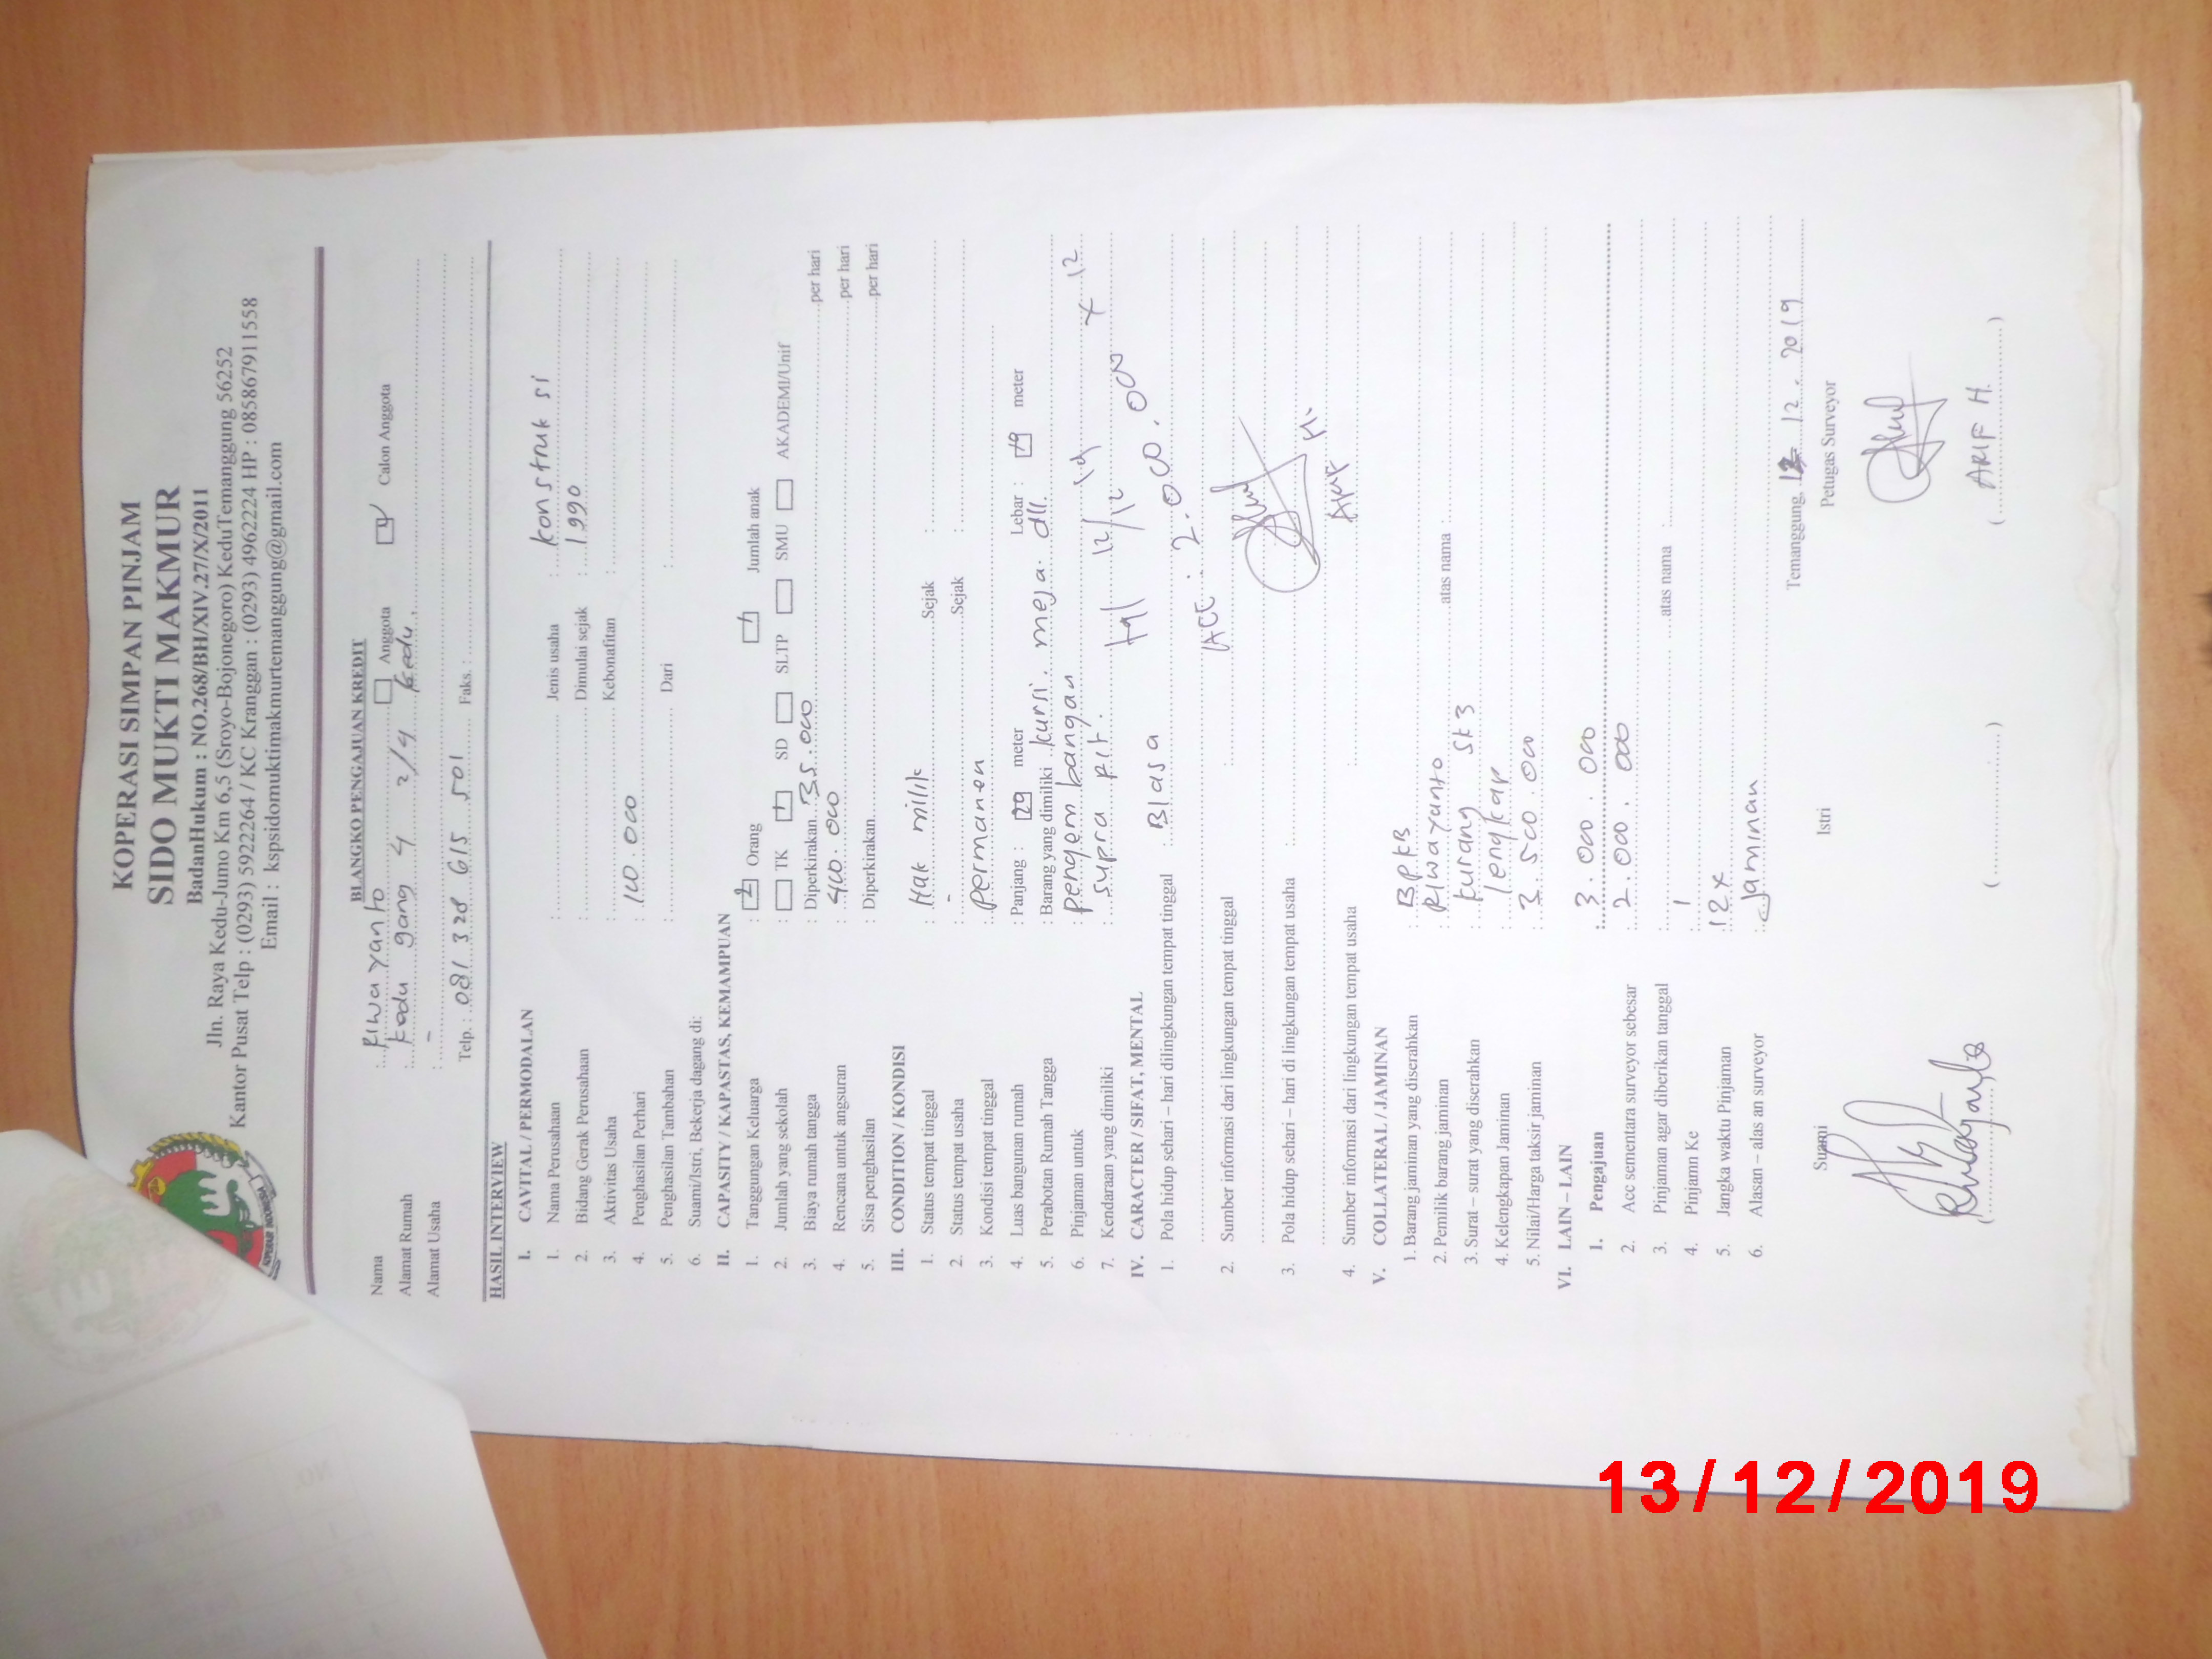 KOPERASI SIMPAN PINJAM
SIDO MUKTI MAKMUR
BadanHukum : NO.268/BH/XIV.27/X/2011
Jln. Raya Kedu-Jumo Km 6,5 (Sroyo-Bojonegoro) KeduTemanggung 56252
Kantor Pusat Telp : (0293) 5922264 / KC Kranggan : (0293) 4962224 HP : 085867911558
Email : kspsidomuktimakmurtemanggung@gmail.com
BLANGKO PENGAJUAN KREDIT
Nama : Riwayanto Anggota Calon Anggota
Alamat Rumah : Kedu gang 4 2/4 Kedu
Alamat Usaha : -
Telp. : 081 328 615 501 Faks. :
HASIL INTERVIEW
I. CAVITAL / PERMODALAN
1. Nama Perusahaan : Jenis usaha : konstruk si
2. Bidang Gerak Perusahaan : Dimulai sejak : 1990
3. Aktivitas Usaha : Kebonafitan :
4. Penghasilan Perhari : 100.000
5. Penghasilan Tambahan : Dari :
6. Suami/Istri, Bekerja dagang di:
II. CAPASITY / KAPASTAS, KEMAMPUAN
1. Tanggungan Keluarga : Orang Jumlah anak
2. Jumlah yang sekolah : TK SD SLTP SMU AKADEMI/Unif
3. Biaya rumah tangga : Diperkirakan 35.000 per hari
4. Rencana untuk angsuran : 400.000 per hari
5. Sisa penghasilan : Diperkirakan per hari
III. CONDITION / KONDISI
1. Status tempat tinggal : Hak milik Sejak :
2. Status tempat usaha : - Sejak :
3. Kondisi tempat tinggal : permanen
4. Luas bangunan rumah : Panjang : meter Lebar : meter
5. Perabotan Rumah Tangga : Barang yang dimiliki kursi. meja. dll.
6. Pinjaman untuk : pengembangan
7. Kendaraan yang dimiliki : supra fit.
tgl 12/12 19
ACC. 2.000.000 x 12
IV. CARACTER / SIFAT, MENTAL
1. Pola hidup sehari – hari dilingkungan tempat tinggal : Biasa
2. Sumber informasi dari lingkungan tempat tinggal :
3. Pola hidup sehari – hari di lingkungan tempat usaha :
Arif H.
4. Sumber informasi dari lingkungan tempat usaha :
V. COLLATERAL / JAMINAN
1. Barang jaminan yang diserahkan : BPKB
2. Pemilik barang jaminan : Riwayanto atas nama :
3. Surat – surat yang diserahkan : kurang
4. Kelengkapan Jaminan : lengkap
5. Nilai/Harga taksir jaminan : 3.500.000
VI. LAIN – LAIN
1. Pengajuan : 3.000.000
2. Acc sementara surveyor sebesar : 2.000.000
3. Pinjaman agar diberikan tanggal : atas nama :
4. Pinjamn Ke : 1
5. Jangka waktu Pinjaman : 12x
6. Alasan – alas an surveyor : Jaminan
Temanggung, 12.2019
Suami Istri Petugas Surveyor
( ) ( ) ( ARIF H. )
13/12/2019